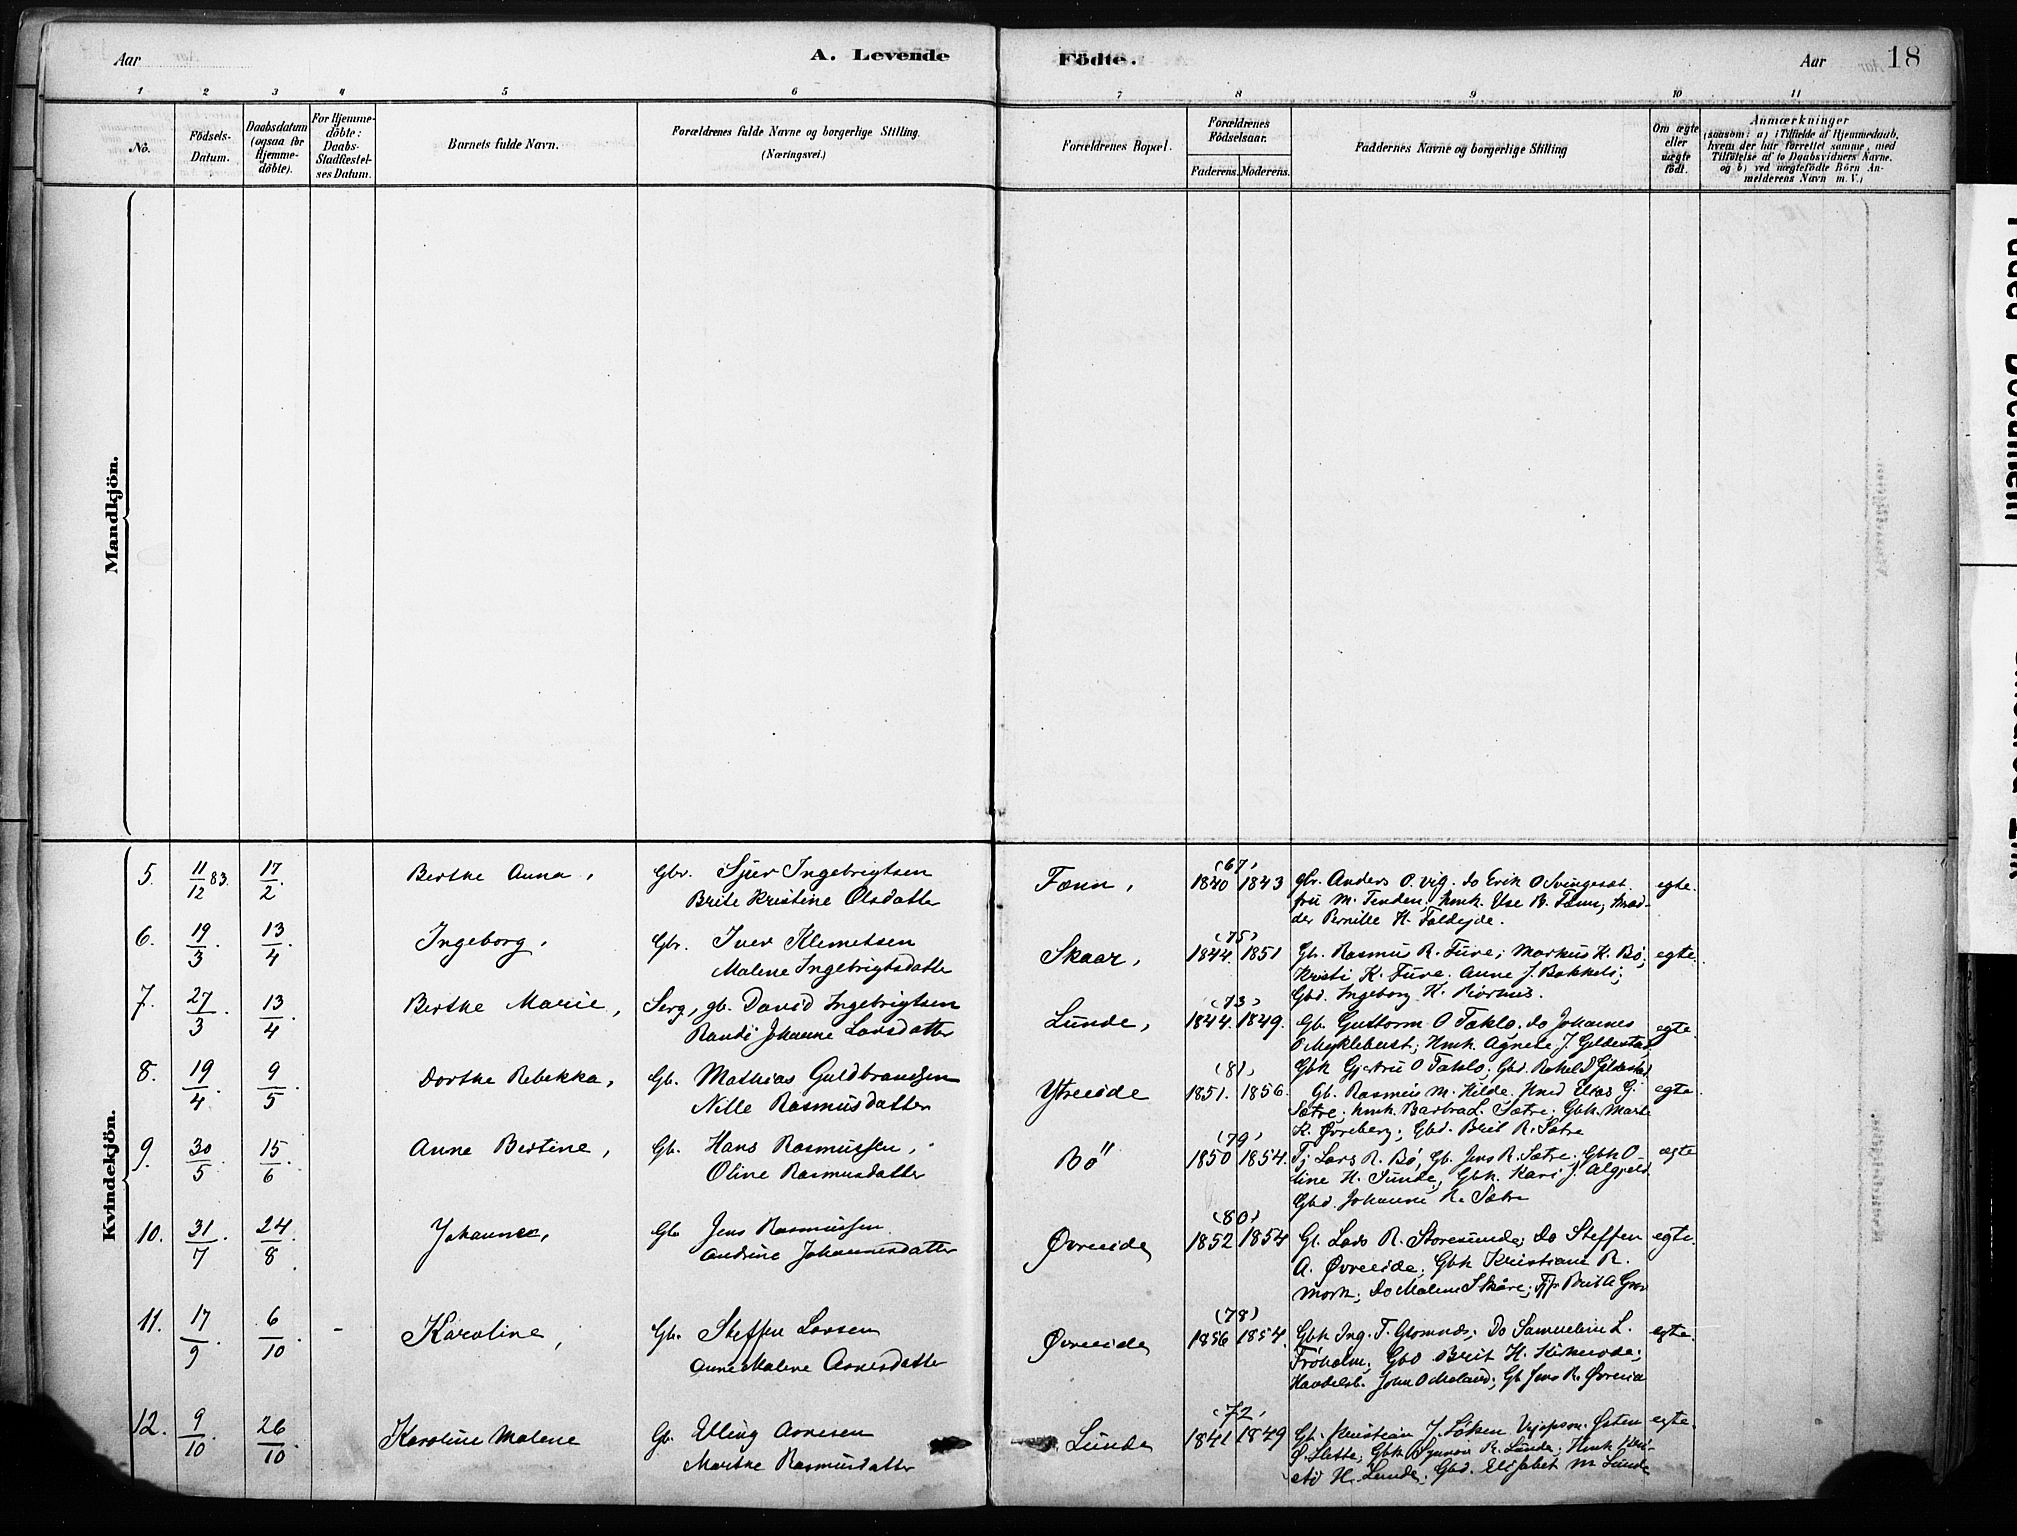 Aar
A. Levende
Födte.
Aar
18
1 2 3 4 5 6 7 8 9 10 11
No.
Födsels-Datum.
Daabsdatum (ogsaa for Hjemme-döbte).
For Hjemme-döbte: Daabs-Stadfæstel-ses Datum.
Barnets fulde Navn.
Forældrenes fulde Navne og borgerlige Stilling. (Næringsvei.)
Forældrenes Bopæl.
Forældrenes Födselsaar.
Faderens. Moderens.
Faddernes Navne og borgerlige Stilling
Om ægte eller uægte födt.
Anmærkninger
(saasom: a) i Tilfælde af Hjemmedaab,
hvem der har forrettet samme, med
Tilföielse af to Daabsvidners Navne.
og b) ved uægtefödte Börn An-
melderens Navn m. V.)
Mandkjön.
Kvindekjön.
5. 11/12 83. 17/2. Berthe Anna, Gbr. Sjur Ingebrigtsen
Brite Kristine Olsdatter
Fænn, (67) 1840 1843
gbr. Anders O. Vig. do Erik O Svingeset. egte.
fru M. Tenden, hmk. Else B. Fænn,
der Pernille H. Faldejde.
6. 19/3. 13/4. Ingeborg, Gbr. Iver Klemetsen
Malene Ingebrigtsdatter
Skaar, (75) 1844. 1851
Gb. Rasmus R. Fure; Markus K. Bø; egte.
Kristi K. Fure. Anne J. Bakkels;
Gbd. Ingeborg H.
7. 27/3 13/4. Berthe Marie, Serg, gb. David Ingebrigtsen
Randi Johanne Larsdatter
Lunde, (73) 1844. 1849.
Gb. Guttorm O Taklo, do Johannes egte.
O Myklebust; Hmk Agnete J Gildestad
Gbk Gjertrud O Taklo; Gbd. Rakel D Gildestad
8. 19/4. 9/5 Dorthe Rebekka, Gb. Mathias Guldbrandsen
Nille Rasmusdatter
Ytreeide (81) 1851. 1856.
Gb. Rasmus M. Hilde. Hmd Elias G. egte
Sætre; hmk. Barbra L. Sætre; Gbk. Marte
K. Øvreberg; Gbd. Brit R. Sætre
9. 30/5. 15/6. Anne Bertine, Gb. Hans Rasmussen,
Oline Rasmusdatter
Bø (79) 1850 1854.
Tj Lars R. Bø, Gb. Jens R. Sætre. Gbk O- ægte
line H. Sunde, Gbk. Kari J.
Gbd. Johanne R. Sætre
10. 31/7. 24/8. Johanne, Gb. Jens Rasmussen
Andrine Johannesdatter
Øvreeide (80) 1852 1854
Gb. Lars R. Storesunde; Do Steffen egte.
A. Øvreeide; Gbk Kristiane R.
Mork; Do Malene Skåre; Tjp Brit A
11. 17/9 6/10 Karoline, Gb. Steffen Larsen
Anne Malene Aanesdatter
Øvreeide (78) 1856 1854.
Gbk Ing. T. Glomnes; Do Samueline L. egte.
Frøholm; Gbd Brit H. Kirkeeide;
Handelsb. John O Meland; Gb Jens R. Øvreeid
12. 9/10. 26/10 Karoline Malene Gb. Elling Aanesen
Marthe Rasmusdatter
Lunde (72) 1841 1849
Gb. Kristian J. Løken. Østen egte.
Ø. Slette; Gbk Synneva R. Lunde; Hmk
H. Lunde. Gbd. Elisabet M Lunde